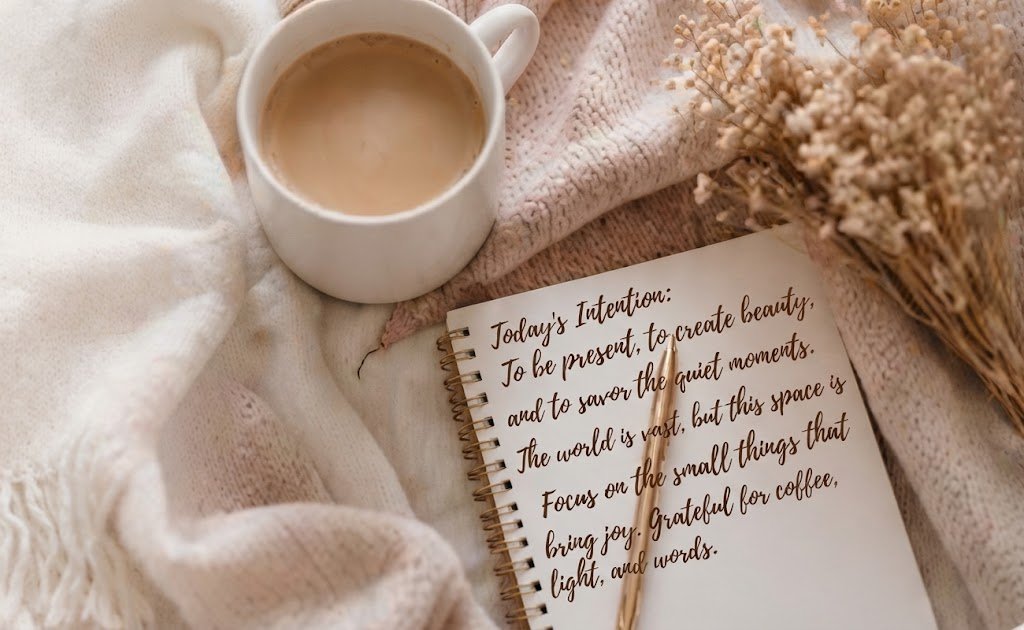 Today's Intention:
To be present, to create beauty,
and to savor the quiet moments.
The world is vast, but this space is
Focus on the small things that
bring joy. Grateful for coffee,
light, and words.